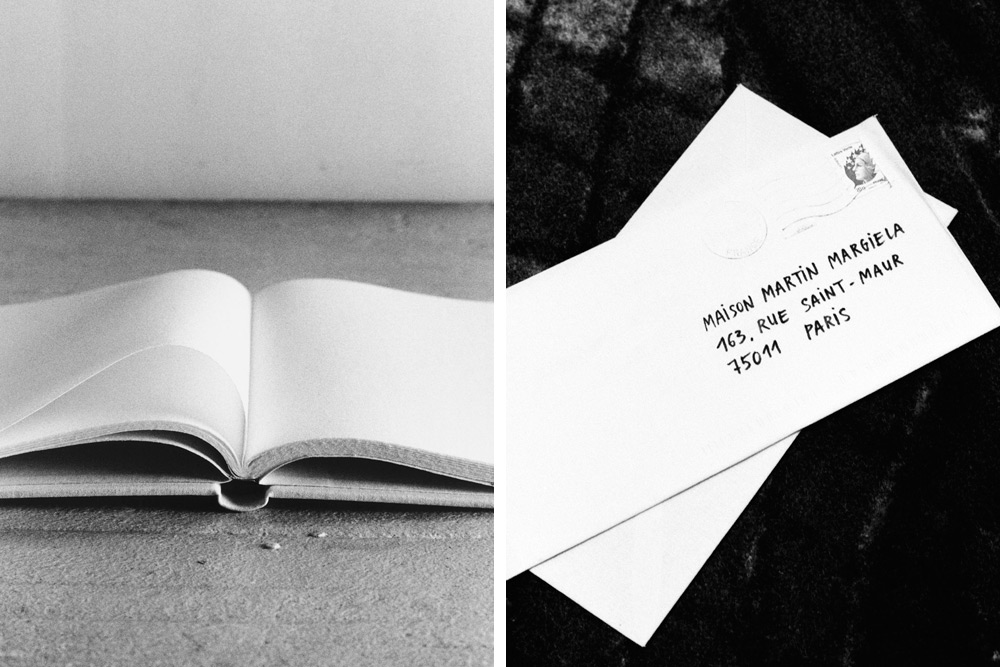 MAISON MARTIN MARGIELA
163, RUE SAINT-MAUR
75011 PARIS